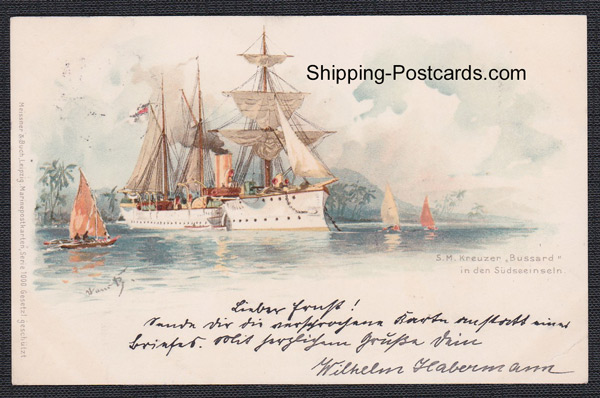 Shipping-Postcards.com
Meissner & Buch, Leipzig. Marinepostkarten, Serie 1000 Gesetzl. geschützt
S.M. Kreuzer „Bussard"
in den Südseeinseln.
Lieber Ernst!
Sende dir die versprochene Karte anstatt eines
Briefes. Mit herzlichem Gruße dein
Wilhelm Habermann